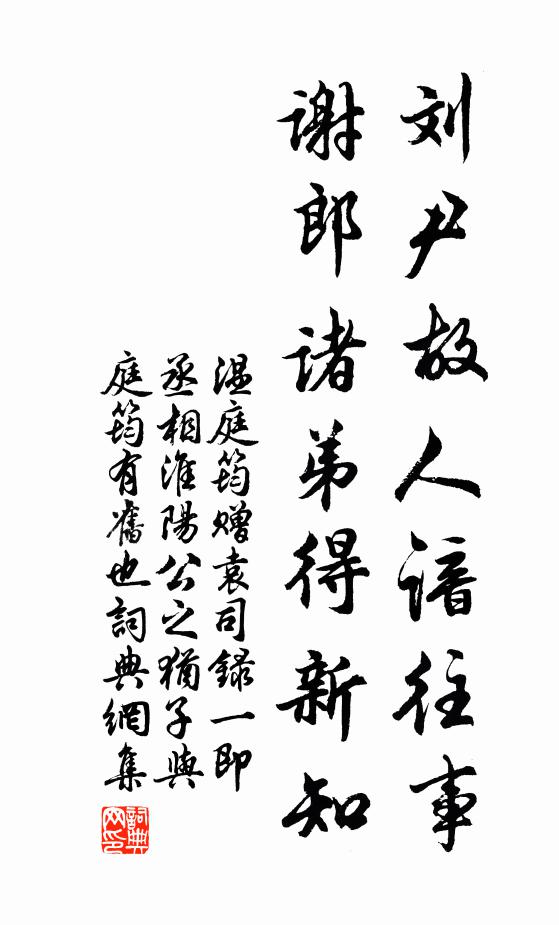 刘尹故人谙往事
谢郎诸弟得新知
温庭筠赠袁司録一即
丞相淮陽公之猶子與
庭筠有舊也詞典網集
詞典网印